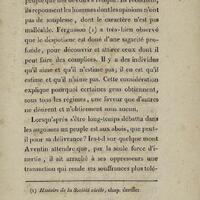 ils repoussent les hommes dont les opinions n'ont
pas de souplesse, dont le caractère n'est pas
malléable. Fergusson (1) a très-bien observé
que le despotisme est doué d'une sagacité pro-
fonde, pour découvrir et attirer ceux dont il
peut faire des complices. Il y a des individus
qu'il aime et qu'il n'estime pas; il en est qu'il
estime et qu'il n'aime pas. Cette considération
explique pourquoi certaines gens obtiennent,
sous tous les régimes, une faveur que d'autres
ne désirent et n'obtiennent sous aucun.
Lorsqu'après s'être long-temps débattu dans
les angoisses un peuple est aux abois, que peut-
il pour sa délivrance? Ira-t-il sur quelque mont
Aventin attendre que, par la seule force d'i-
nertie, il ait arraché à ses oppresseurs une
transaction qui rende ses souffrances plus tolé-
(1) Histoire de la Société civile, chap. dernier.